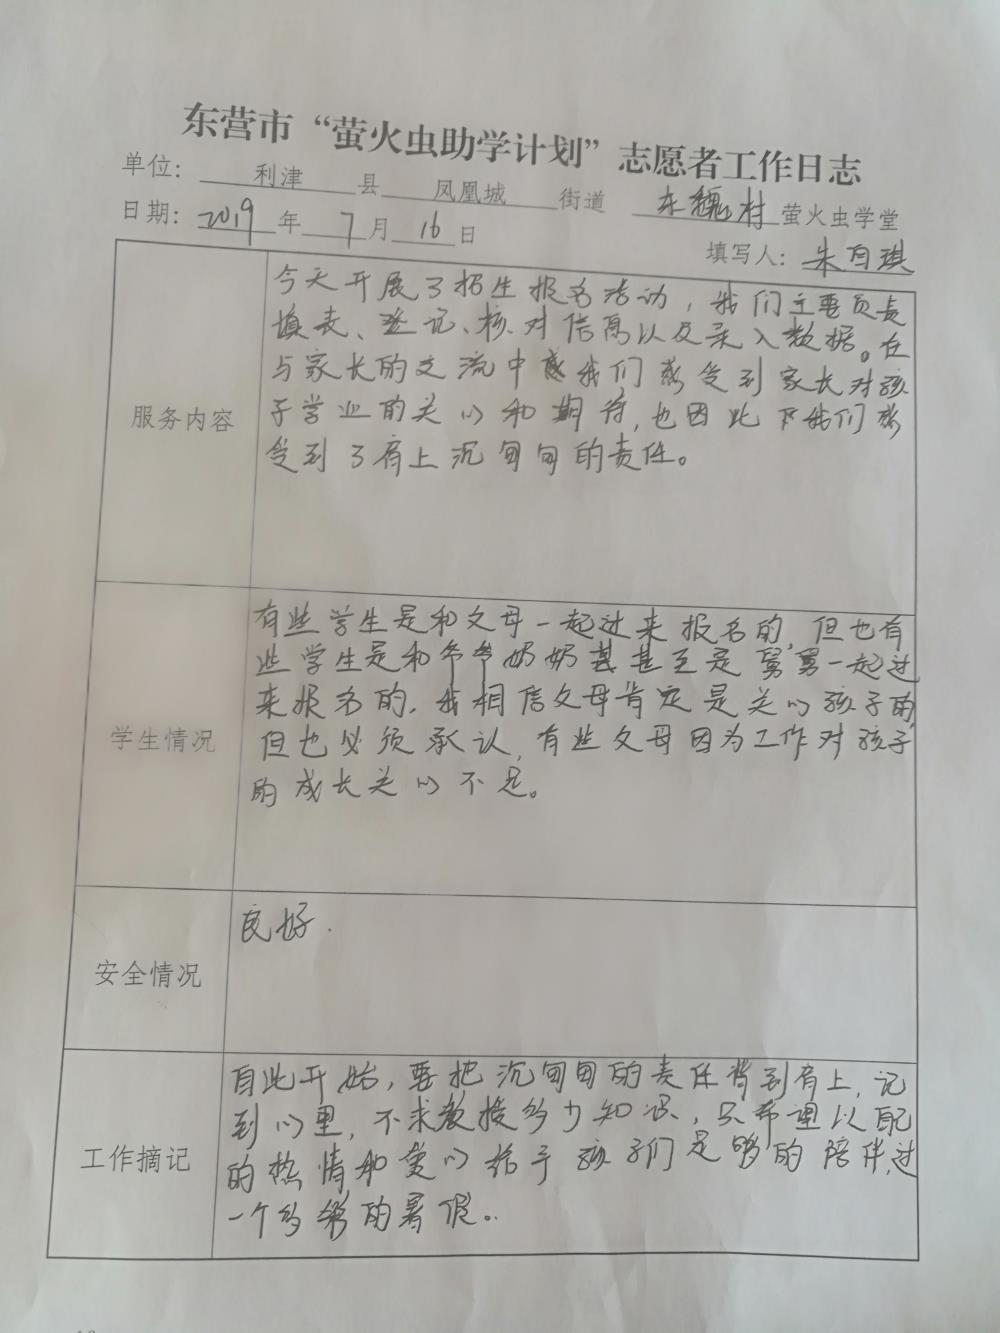 东营市“萤火虫助学计划”志愿者工作日志
单位： 利津 县 凤凰城 街道 东魏村 萤火虫学堂
日期：2019 年 7 月 16 日
填写人：朱自琪
服务内容
今天开展了招生报名活动，我们主要负责
填表、登记、核对信息以及录入数据。在
与家长的交流中 我们感受到家长对孩
子学业的关心和期待，也因此 我们感
受到了肩上沉甸甸的责任。
学生情况
有些学生是和父母一起过来报名的，但也有
些学生是和爷爷奶奶甚至是舅舅一起过
来报名的，我相信父母肯定是关心孩子的，
但也必须承认，有些父母因为工作对孩子
的成长关心不足。
安全情况
良好.
工作摘记
自此开始，要把沉甸甸的责任背到肩上，记
到心里，不求教授多少知识，只希望以
的热情和爱心给予孩子们足够的陪伴，过
一个多彩的暑假。